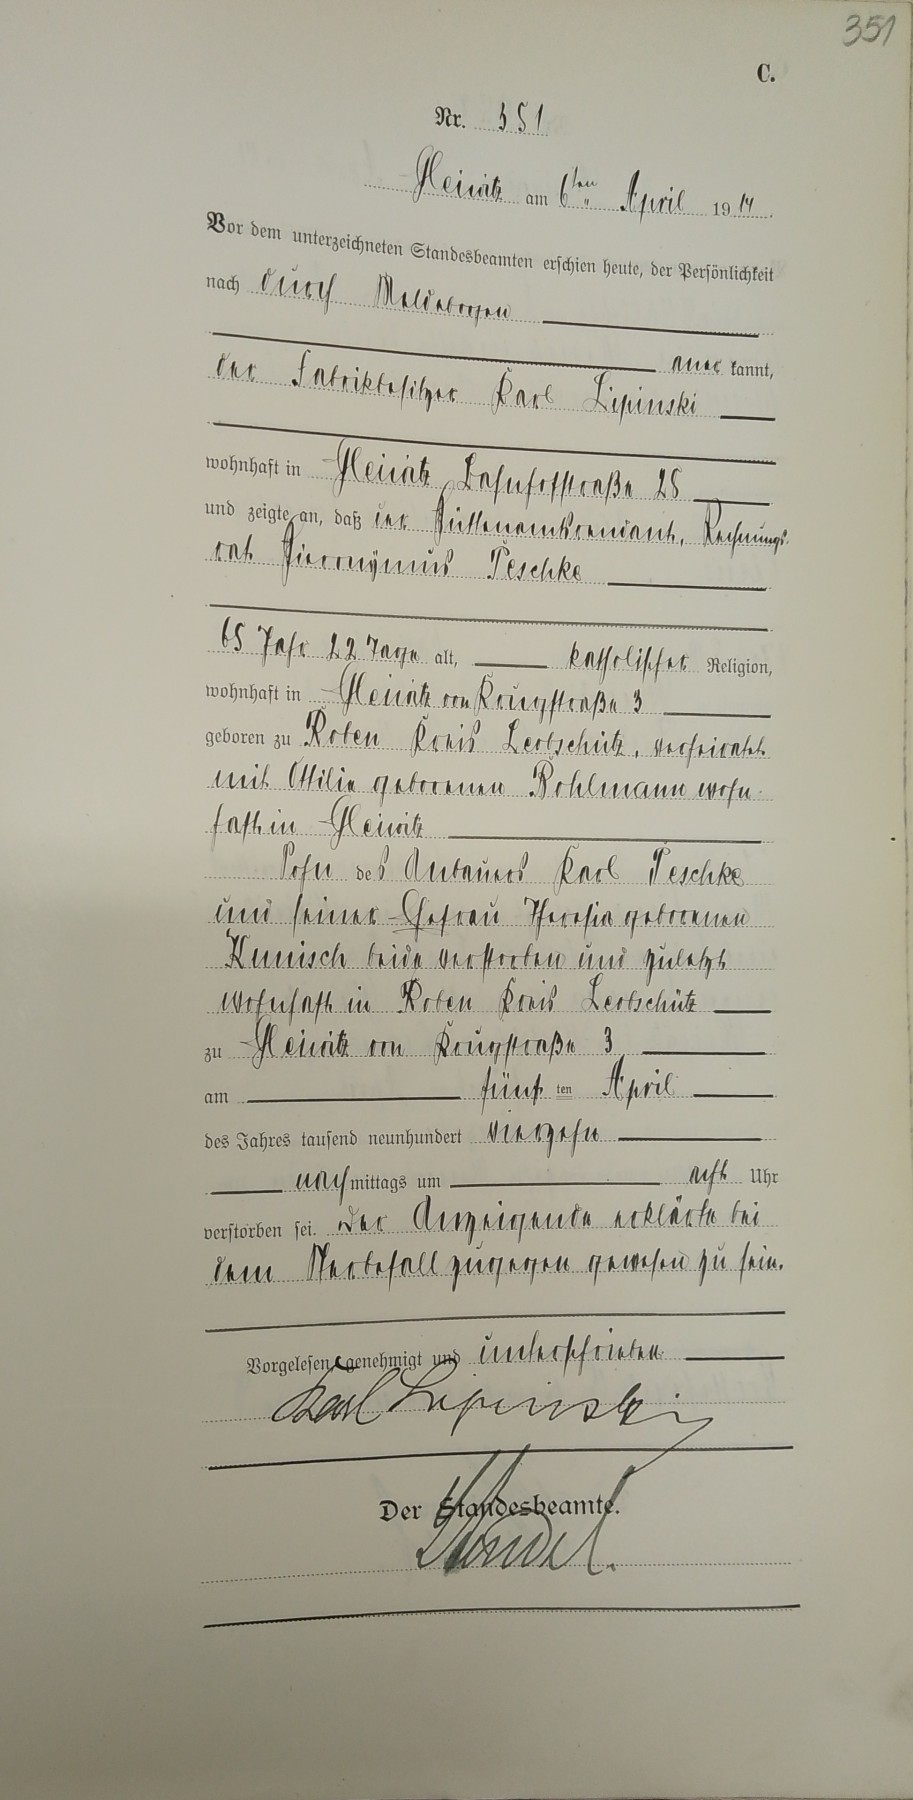 351
C.
Nr. 351
Gleiwitz am 6ten April 1914.
Vor dem unterzeichneten Standesbeamten erschien heute, der Persönlichkeit
nach durch Meldebogen
aner kannt,
der Fabrikbesitzer Karl Lipinski
wohnhaft in Gleiwitz Bahnhofstraße 28
und zeigte an, daß der Hüttenamtsrendant, Rechnungs-
rat Hieronymus Peschke
65 Jahr 22 Tage alt, katholischer Religion,
wohnhaft in Gleiwitz von Krugstraße 3
geboren zu Roben Kreis Leobschütz, verheiratet
mit Ottilie geborenen Pohlmann wohn-
haft in Gleiwitz
Sohn des Anbauers Karl Peschke
und seiner Ehefrau Theresia geborenen
Kunisch beide verstorben und zuletzt
wohnhaft in Roben Kreis Leobschütz
zu Gleiwitz von Krugstraße 3
am fünf ten April
des Jahres tausend neunhundert vierzehn
nach mittags um acht Uhr
verstorben sei. Der Anzeigende erklärte bei
dem Sterbefall zugegen gewesen zu sein.
Vorgelesen, genehmigt und unterschrieben
Karl Lipinski
Der Standesbeamte.